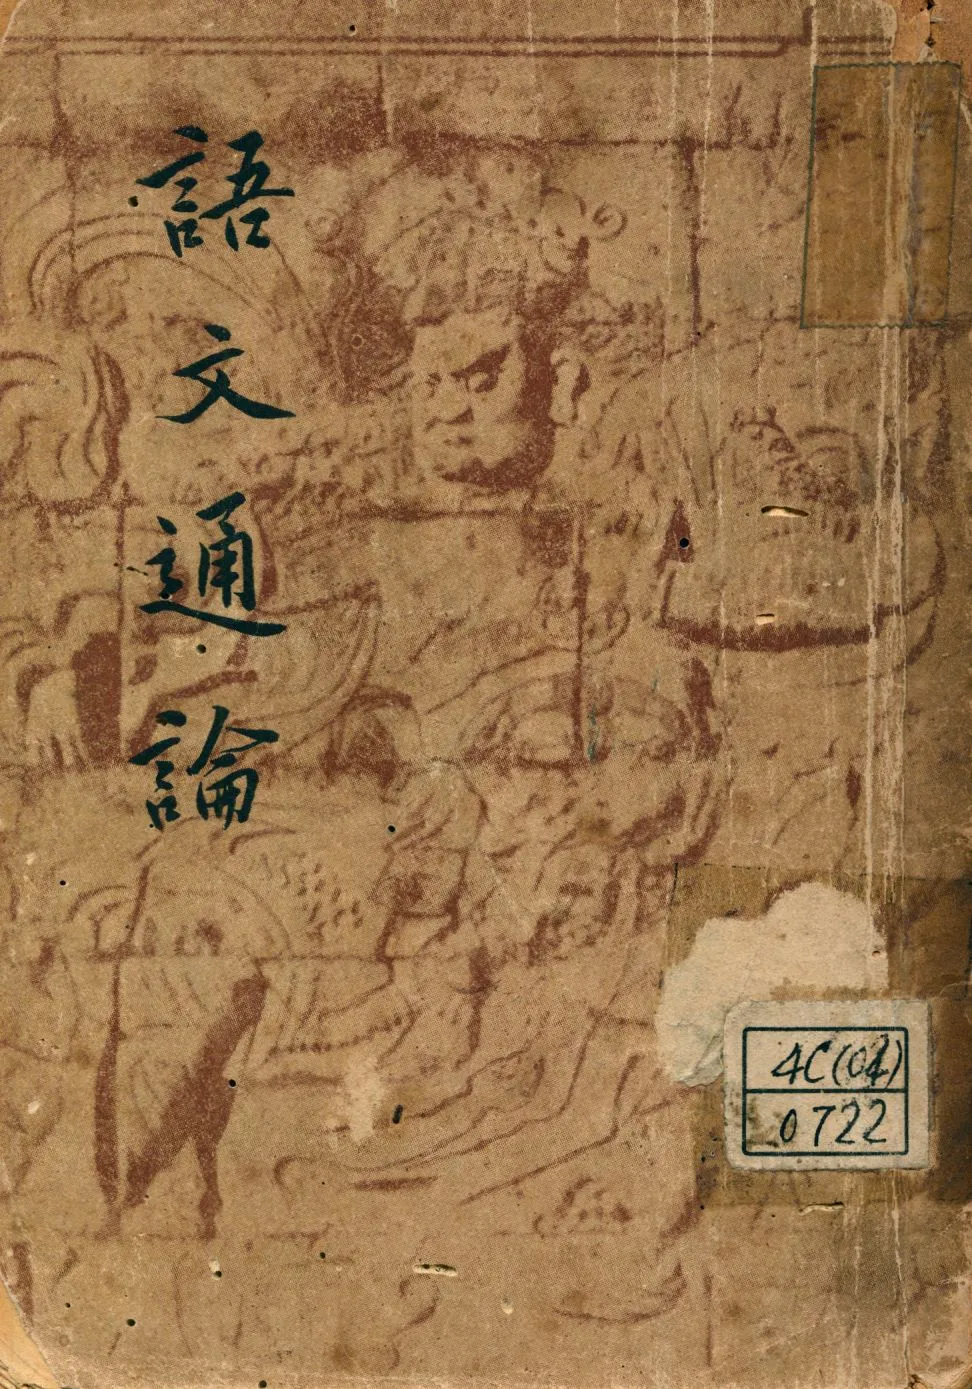 語文通論
4C(04)
0722